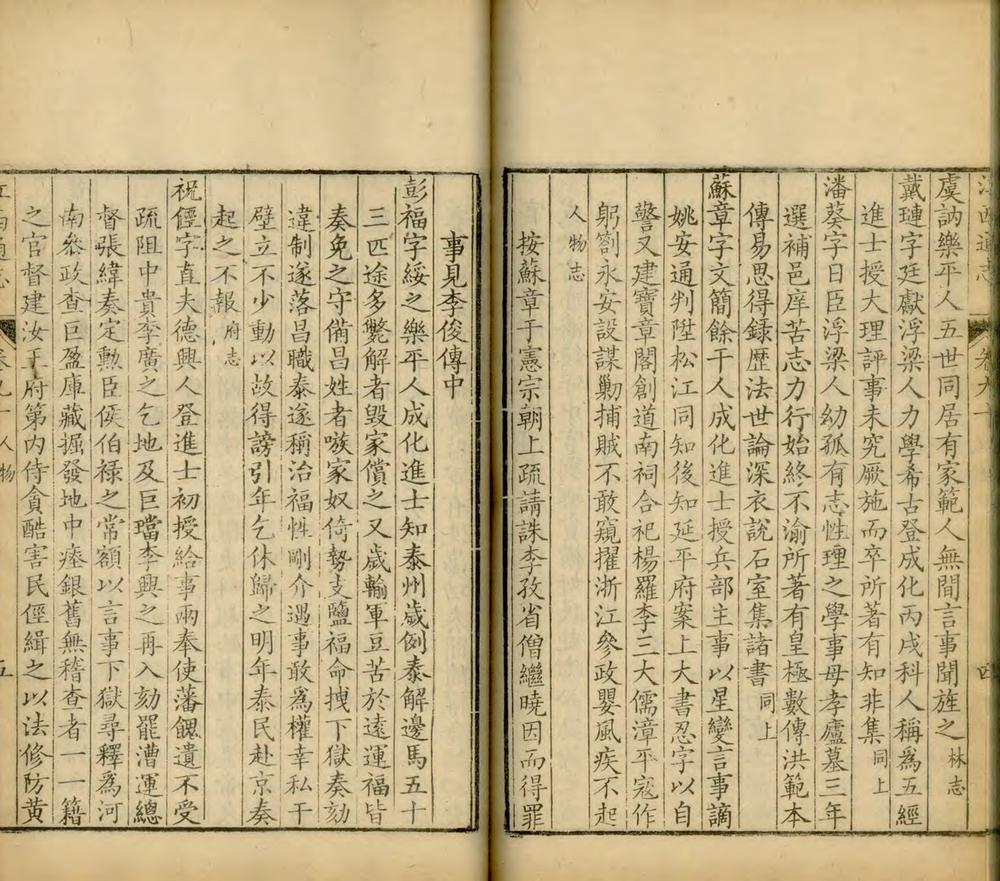 江西通志 卷九十 四
虞訥樂平人五世同居有家範人無間言事聞旌之林志
戴璉字廷獻浮梁人力學希古登成化丙戌科人稱為五經
進士授大理評事未究厥施而卒所著有知非集同上
潘葵字日臣浮梁人幼孤有志性理之學事母孝廬墓三年
選補邑庠苦志力行始終不渝所著有皇極數傳洪範本
傳易思得録歴法世論深衣說石室集諸書同上
蘇章字文簡餘干人成化進士授兵部主事以星變言事謫
姚安通判陞松江同知後知延平府案上大書忍字以自
警又建寶章閣創道南祠合祀楊羅李三大儒漳平寇作
躬劄永安設謀勦捕賊不敢窺擢浙江參政嬰風疾不起
人物志
按蘇章于憲宗朝上疏請誅李孜省僧繼曉因而得罪
事見李俊傳中
彭福字綏之樂平人成化進士知泰州歲例泰解邊馬五十
三匹途多斃解者毀家償之又歲輸軍豆苦於遠運福皆
奏免之守備昌姓者嗾家奴倚勢支鹽福命拽下獄奏劾
違制遂落昌職泰遂稱治福性剛介遇事敢為權幸私干
壁立不少動以故得謗引年乞休歸之明年泰民赴京奏
起之不報府志
祝𠍳字直夫德興人登進士初授給事兩奉使藩餽遺不受
疏阻中貴李廣之乞地及巨璫李興之再入劾罷漕運總
督張緯奏定勲臣侯伯禄之常額以言事下獄尋釋為河
南叅政查巨盈庫藏掘發地中瘞銀舊無稽查者一一籍
之官督建汝王府第内侍貪酷害民𠍳緝之以法修防黄
江西通志 卷九十 人物 五